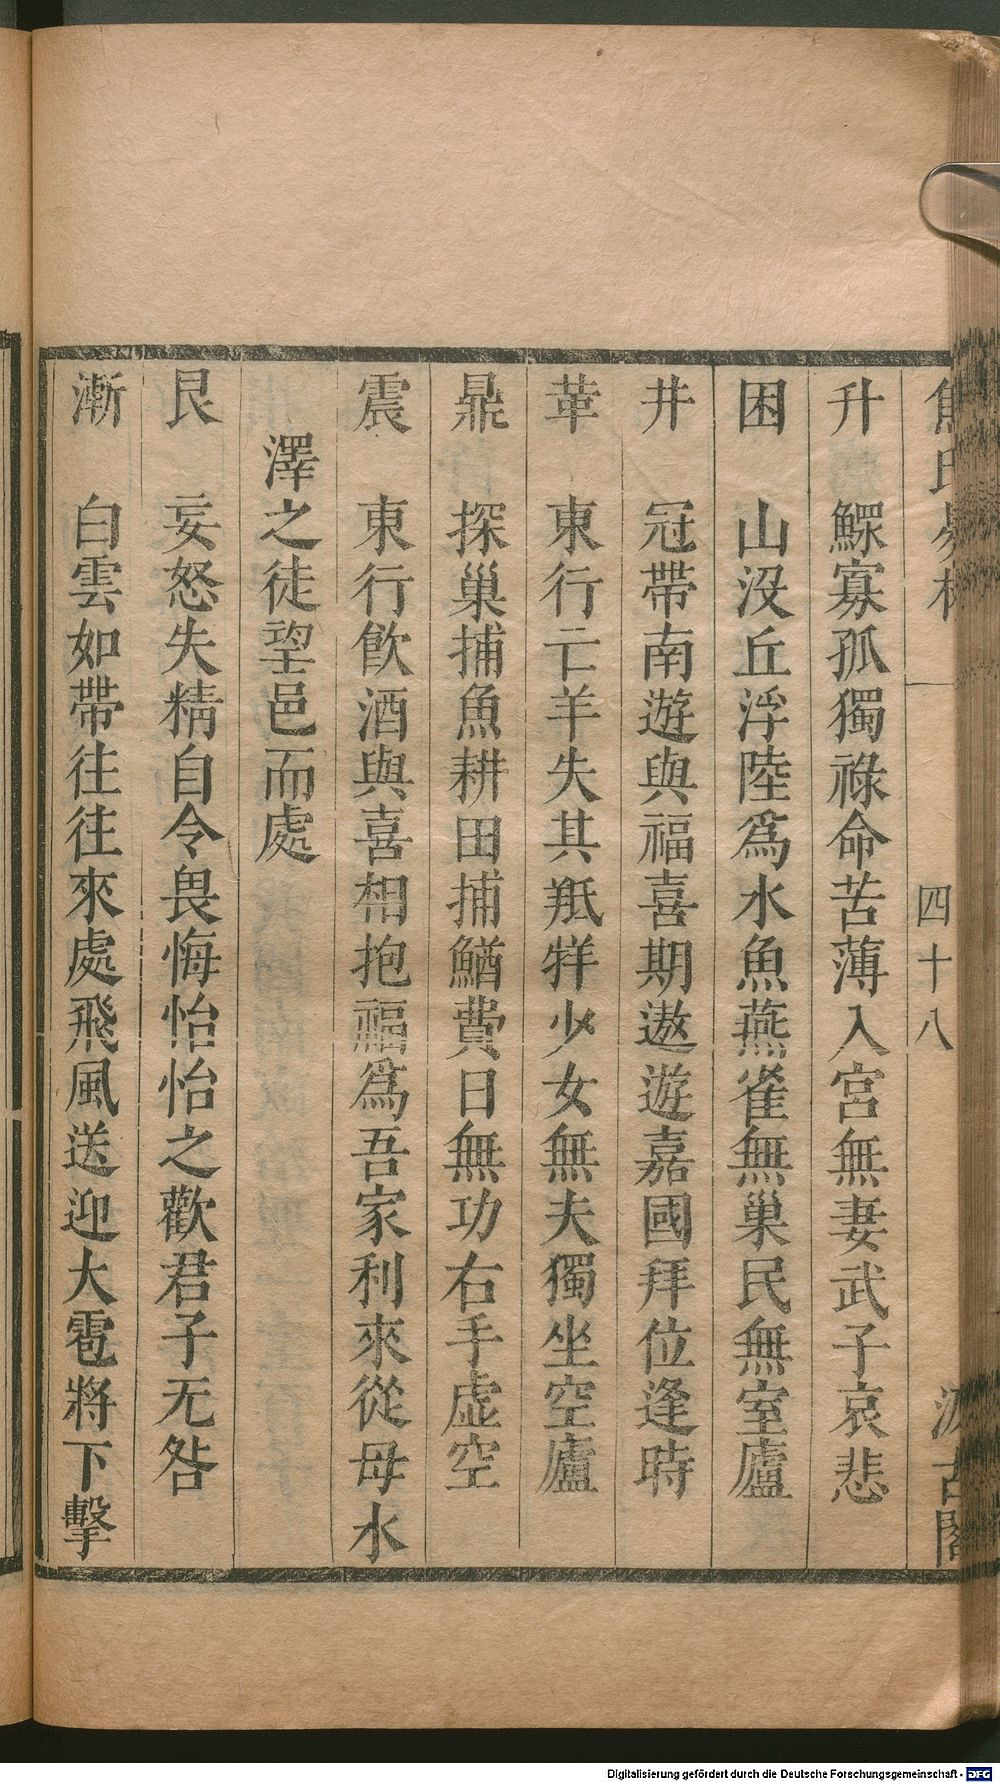 焦氏易林 四十八 汲古閣
升 鰥寡孤獨祿命苦薄入宮無妻武子哀悲
困 山没丘浮陸爲水魚燕雀無巢民無室廬
井 冠帶南遊與福喜期遨遊嘉國拜位逢時
革 東行亡羊失其羝牂少女無夫獨坐空廬
鼎 探巢捕魚耕田捕鰌費日無功右手虛空
震 東行飲酒與喜相抱福爲吾家利來從母水
澤之徒望邑而處
艮 妄怒失精自令畏悔怡怡之歡君子无咎
漸 白雲如帶往往來處飛風送迎大雹將下擊
Digitalisierung gefördert durch die Deutsche Forschungsgemeinschaft - DFG